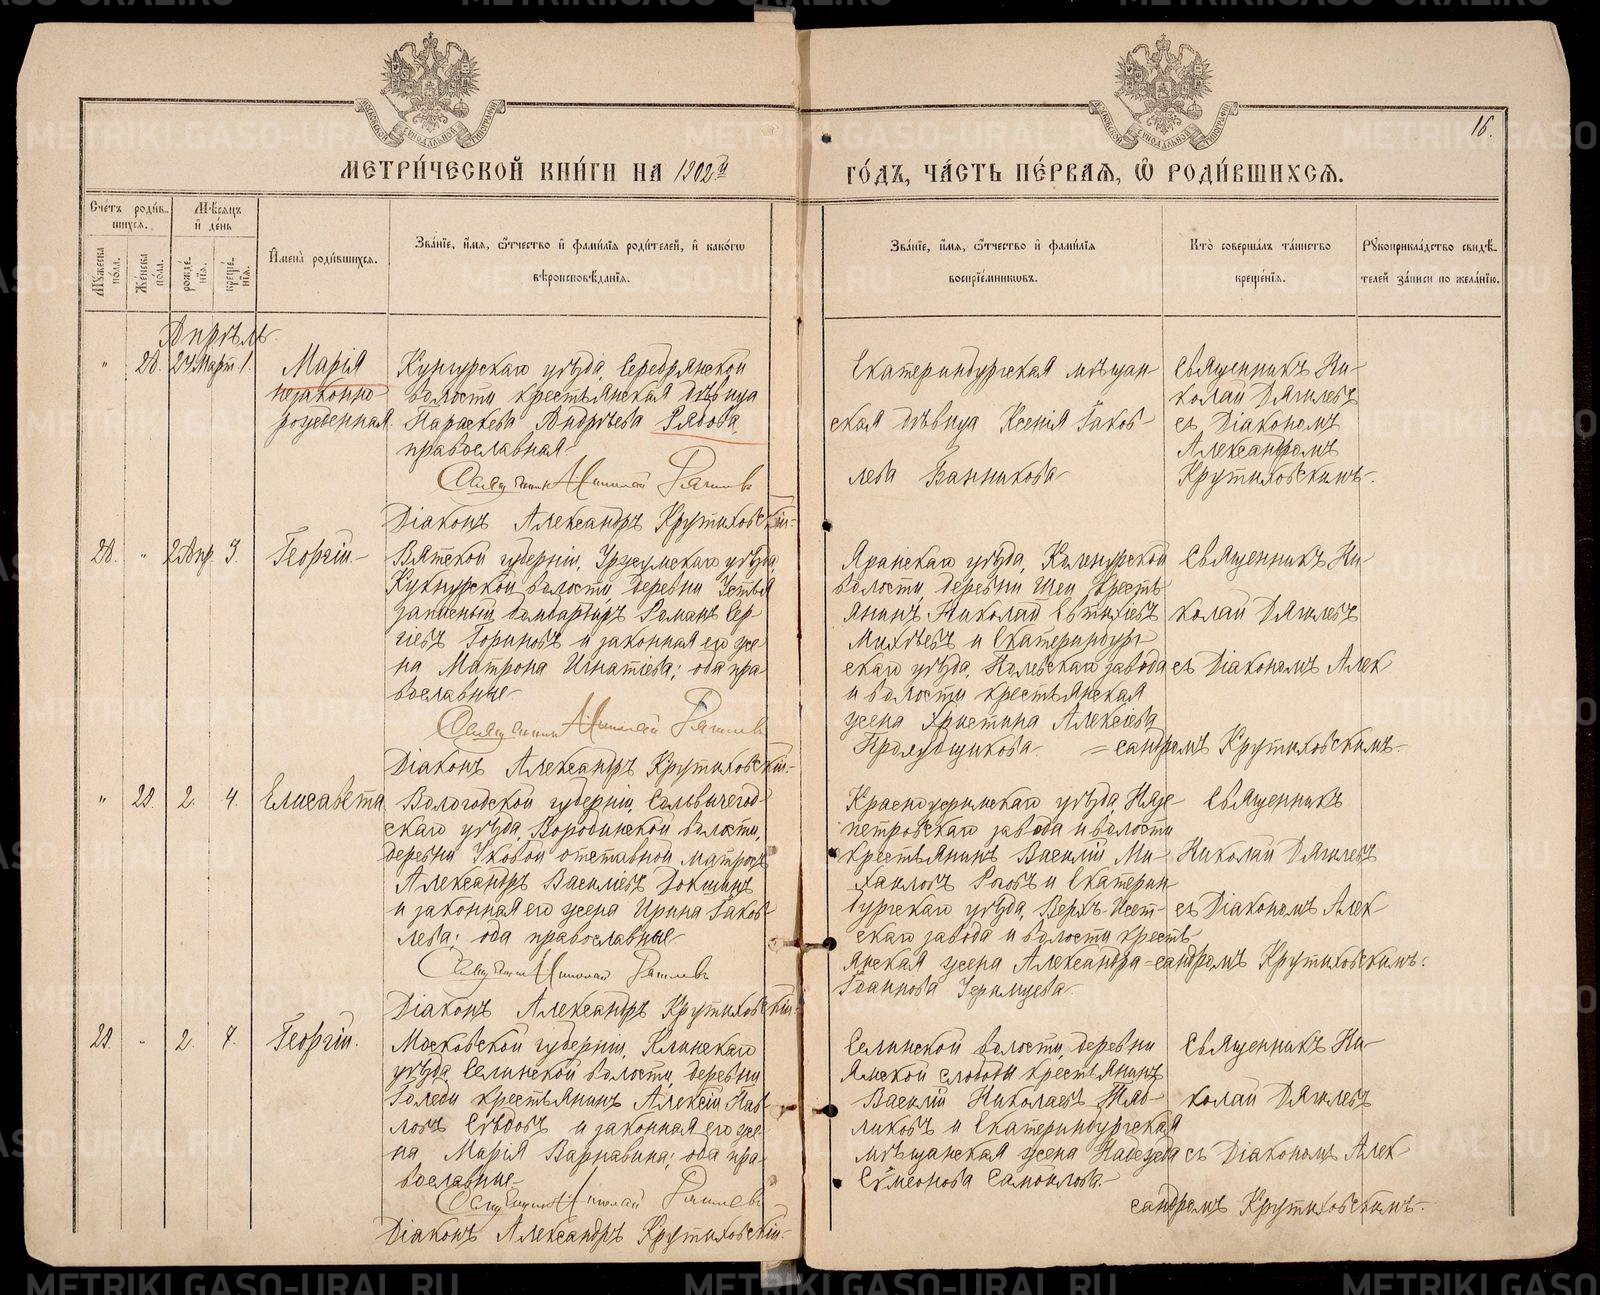 МЕТРИ́ЧЕСКОЙ КНИ́ГИ НА 1902й
ГО́ДЪ, ЧА́СТЬ ПЕ́РВАѦ, Ѿ РОДИ́ВШИХСѦ.
16.
Сче́тъ роди́в-
шихсѧ.
Мѣсѧцъ
и҆ де́нь
Мꙋ́жеска пола.
Же́нска пола.
рожде́нїѧ.
креще́нїѧ.
И҆мена̀ роди́вшихсѧ.
Зва́нїе, и҆́мѧ, ѻ҆́тчество и҆ фамилїѧ роди́телей, и҆ како́гѡ
вѣроисповѣ́данїѧ.
Зва́нїе, и҆́мѧ, ѻ҆́тчество и҆ фами́лїѧ
воспрїе́мникѡвъ.
Кто̀ соверша́лъ та́инство
креще́нїѧ.
Рꙋкоприкла́дство свидѣ́-
телей за́писи по жела́нїю.
Апрѣль
" 28. 24 Март. 1.
Марія
незаконно
рожденная
Кунгурскаго уѣзда, Серебрянской
волости крестьянская дѣвица
Параскева Андреева Рядова,
православная
Священник Николай Дягилевъ
Діаконъ Александръ Крутиховскій
Екатеринбургская мѣщан-
ская дѣвица Ксенія Іаков-
лева Банникова
Священникъ Ни-
колай Дягилевъ
съ Діакономъ
Александромъ
Крутиховскимъ.
28. " 2 Апр. 3.
Георгій
Вятской губерніи, Уржумскаго уѣзда,
волости, деревни Устья
запасный бомбардиръ Романъ Сер-
гіевъ Гориновъ и законная его же-
на Матрона Игнатіева; оба пра-
вославные
Священник Николай Дягилевъ
Діаконъ Александръ Крутиховскій
Яранскаго уѣзда,
волости, деревни кресть
янинъ Николай Евтихіевъ
и Екатеринбург
скаго уѣзда, завода
и волости крестьянская
жена Христина Алексіева
Пролубщикова
Священникъ Ни-
колай Дягилевъ
съ Діакономъ Алек
=сандромъ Крутиховскимъ
" 29. 2. 4.
Елисавета
Вологодской губерніи, Сольвычегод-
скаго уѣзда, волости,
деревни отставной матросъ
Александръ Василіевъ Докшинъ
и законная его жена Ирина Іаков-
лева; оба православные
Священник Николай Дягилевъ
Діаконъ Александръ Крутиховскій
Красноуфимскаго уѣзда, Нязе-
петровскаго завода и волости
крестьянинъ Василій Ми-
хаиловъ Роговъ и Екатерин
бургскаго уѣзда, Верхъ-Исет-
скаго завода и волости кресть-
янская жена Александра
Іоаннова
Священникъ
Николай Дягилевъ
съ Діакономъ Алек
=сандромъ Крутиховскимъ.
29. " 2. 7.
Георгій.
Московской губерніи, Клинскаго
уѣзда, Селинской волости, деревни
Голяди крестьянинъ Алексій Пав-
ловъ и законная его же-
на Марія Варнавина; оба пра-
вославные
Священник Николай Дягилевъ
Діаконъ Александръ Крутиховскій
Селинской волости, деревни
Ямской слободы крестьянинъ
Василій Николаевъ
и Екатеринбургская
мѣщанская жена Надежда
Сѵмеонова Самоилова.
Священникъ Ни-
колай Дягилевъ
съ Діакономъ Алек
сандромъ Крутиховскимъ.
METRIKI.GASO-URAL.RU